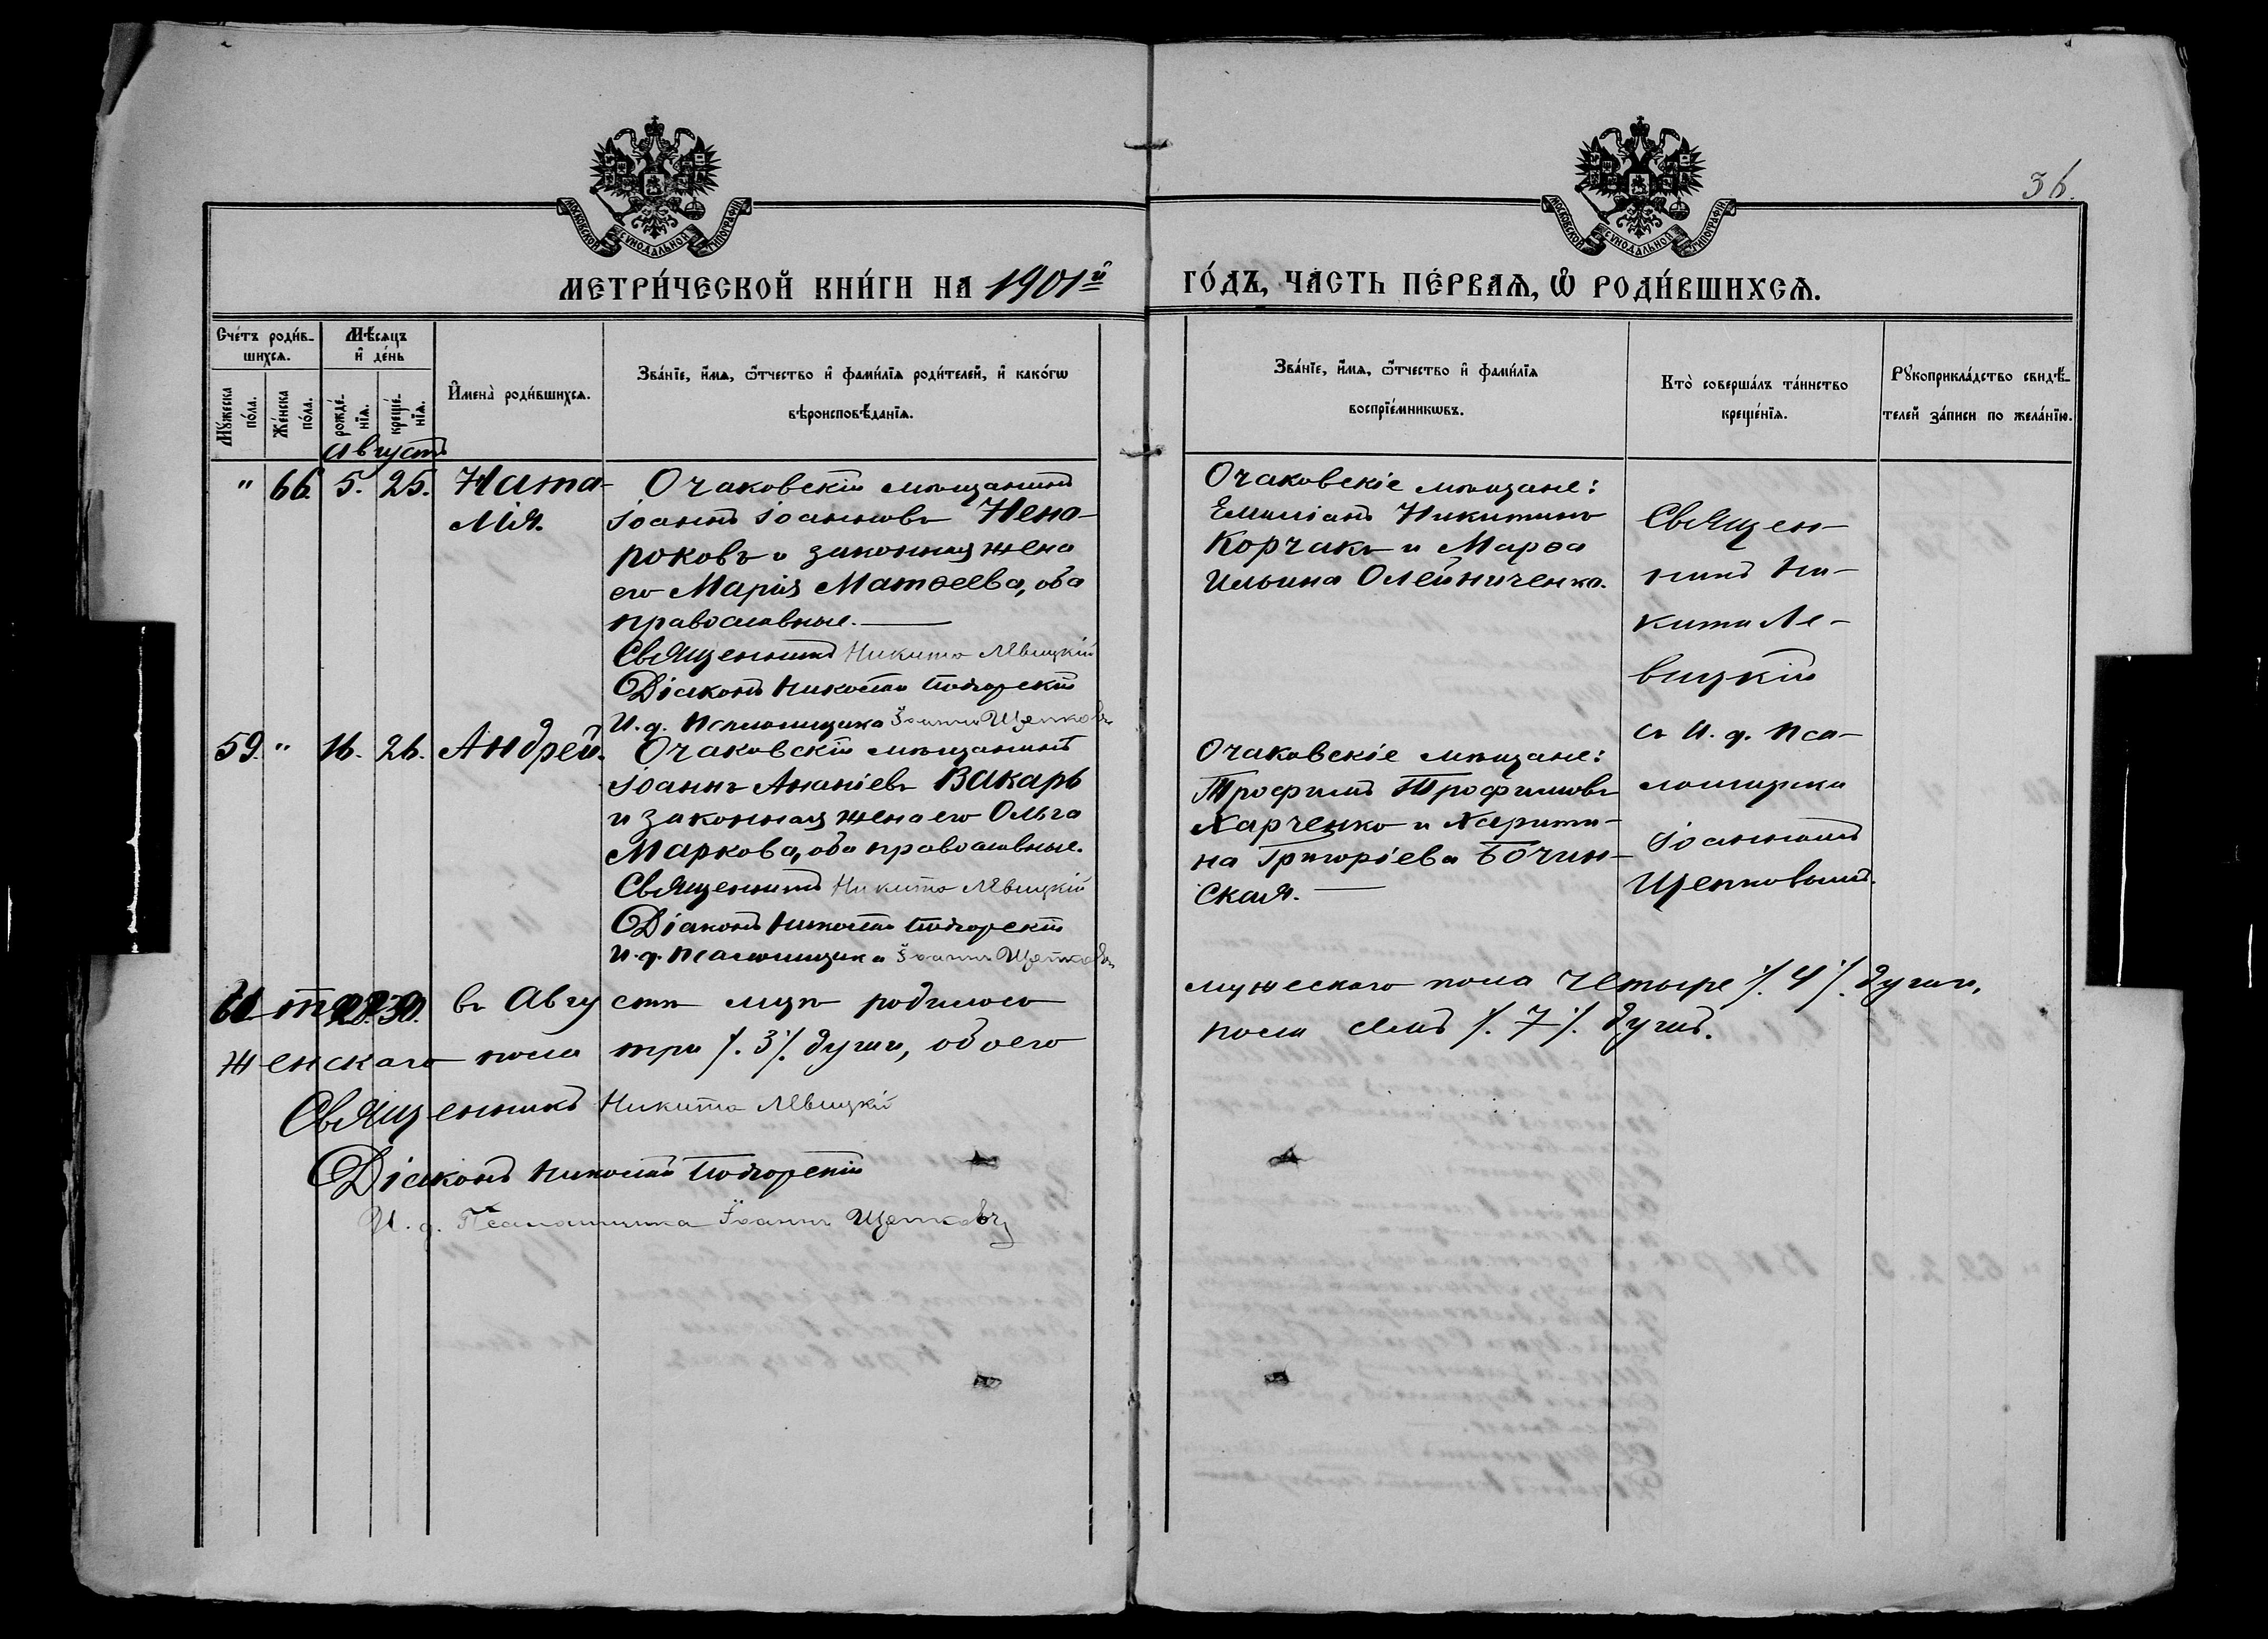 36.
МОСКОВСКОЙ СѴНОДАЛЬНОЙ ТИПОГРАФІИ
МОСКОВСКОЙ СѴНОДАЛЬНОЙ ТИПОГРАФІИ
МЕТРИ́ЧЕСКОЙ КНИ́ГИ НА 1901й
ГО́ДЪ, ЧА́СТЬ ПЕ́РВАѦ, Ѿ РОДИ́ВШИХСѦ.
Сче́тъ роди́в-
шихсѧ.
Мꙋ́жеска
по́ла.
Же́нска
по́ла.
Мѣ́сѧцъ
и҆ де́нь
рожде́-
нїѧ.
креще́-
нїѧ.
И҆мена̀ роди́вшихсѧ.
Зва́нїе, и҆́мѧ, ѻ҆́тчество и҆ фами́лїѧ роди́телей, и҆ како́гѡ
вѣроисповѣ́данїѧ.
Зва́нїе, и҆́мѧ, ѻ҆́тчество и҆ фами́лїѧ
воспрїе́мникѡвъ.
Кто̀ соверша́лъ та́инство
креще́нїѧ.
Рꙋкоприкла́дство свидѣ́-
телей за́писи по жела́нїю.
Августъ
" 66. 5. 25. Ната-
лія.
Очаковскій мѣщанинъ
Іоаннъ Іоанновъ Нена-
роковъ и законная жена
его Марія Матѳеева, оба
православные.
Священникъ Никита Левицкій
Діаконъ Николай Подгорскій
И. д. Псаломщика Іоаннъ Щепковъ
Очаковскіе мѣщане:
Емиліанъ Никитинъ
Корчакъ и Марѳа
Ильина Олейниченко.
Священ-
никъ Ни-
кита Ле-
вицкій
съ И. д. Пса-
ломщика
Іоанномъ
Щепковымъ.
59. " 16. 26. Андрей.
Очаковскій мѣщанинъ
Іоаннъ Ананіевъ Вакарь
и законная жена его Ольга
Маркова, оба православные.
Священникъ Никита Левицкій
Діаконъ Николай Подгорскій
И. д. Псаломщика Іоаннъ Щепковъ
Очаковскіе мѣщане:
Трофимъ Трофимовъ
Харченко и Харити-
на Григоріева Бочин-
ская.
въ Августѣ мцѣ родилось
мужескаго пола четыре /. 4 /. души,
женскаго пола три /. 3 /. души, обоего
пола семь /. 7 /. душъ.
Священникъ Никита Левицкій
Діаконъ Николай Подгорскій
И. д. Псаломщика Іоаннъ Щепковъ